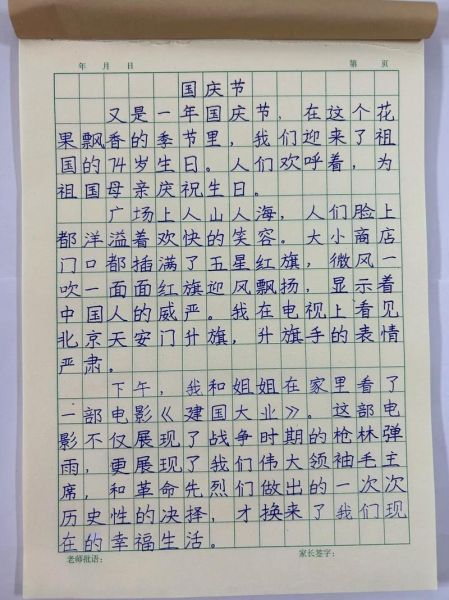 年 月 日 第 页
国庆节
又是一年国庆节，在这个花
果飘香的季节里，我们迎来了祖
国的74岁生日。人们欢呼着，为
祖国母亲庆祝生日。
广场上人山人海，人们脸上
都洋溢着欢快的笑容。大小商店
门口都插满了五星红旗，微风一
吹一面面红旗迎风飘扬，显示着
中国人的威严。我在电视上看见
北京天安门升旗，升旗手的表情
严肃。
下午，我和姐姐在家里看了
一部电影《建国大业》。这部电
影不仅展现了战争时期的枪林弹
雨，更展现了我们伟大领袖毛主
席，和革命先烈们做出的一次次
历史性的决择，才换来了我们现
在的幸福生活。
老师批语： 家长签字：